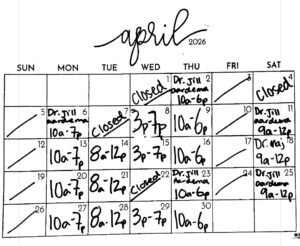 april
2026
SUN MON TUE WED THU FRI SAT
1 closed
2 Dr. Jill aardema 10a-6p
3
4 closed
5
6 Dr. Jill aardema 10a-7p
7 closed
8 3p-7p
9 10a-6p
10
11 Dr. Jill aardema 9a-12p
12
13 10a-7p
14 8a-12p
15 3p-7p
16 10a-6p
17
18 9a-12p
19
20 10a-7p
21 8a-12p
22 closed
23 Dr. Jill aardema 10a-6p
24
25 Dr. Jill aardema 9a-12p
26
27 10a-7p
28 8a-12p
29 3p-7p
30 10a-6p